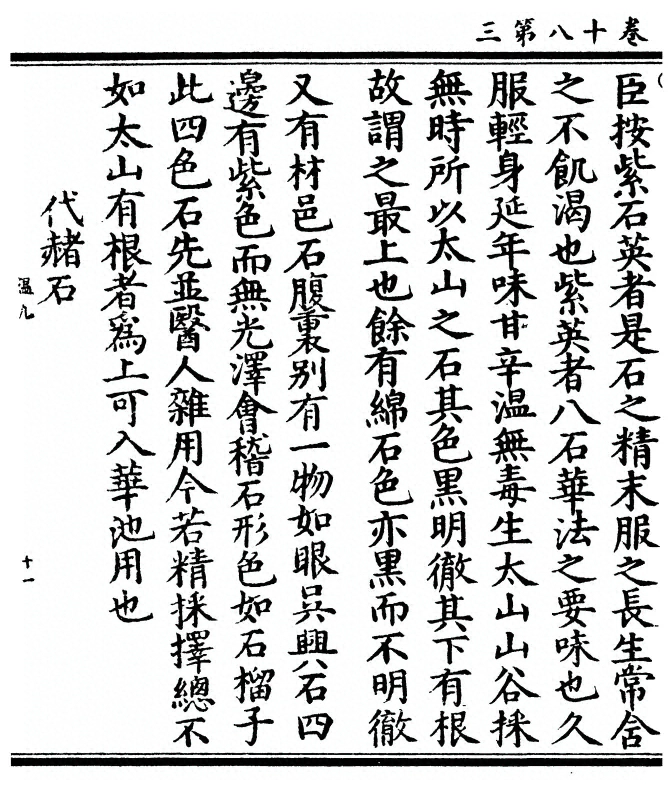 卷十八第三
臣按紫石英者是石之精末服之長生常含
之不飢渴也紫英者八石華法之要味也久
服輕身延年味甘辛温無毒生太山山谷採
無時所以太山之石其色黒明徹其下有根
故謂之最上也餘有綿石色亦黒而不明徹
又有材邑石腹裏别有一物如眼吳興石四
邊有紫色而無光澤會稽石形色如石榴子
此四色石先並醫人雜用今若精採擇總不
如太山有根者爲上可入華池用也
代赭石
温九
十一